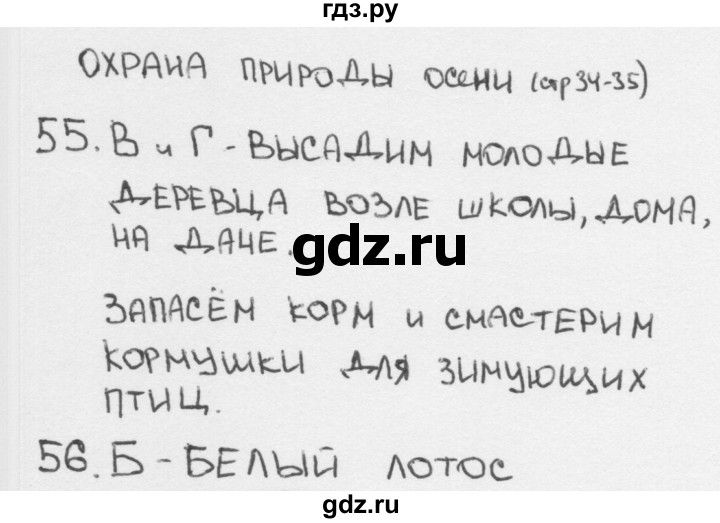 гдз.ру
ОХРАНА ПРИРОДЫ ОСЕНИ (стр 34-35)
55. В и Г - ВЫСАДИМ МОЛОДЫЕ
ДЕРЕВЦА ВОЗЛЕ ШКОЛЫ, ДОМА,
НА ДАЧЕ.
gdz.ru
ЗАПАСЁМ КОРМ И СМАСТЕРИМ
КОРМУШКИ ДЛЯ ЗИМУЮЩИХ
ПТИЦ.
56. Б - БЕЛЫЙ ЛОТОС
gdz.ru